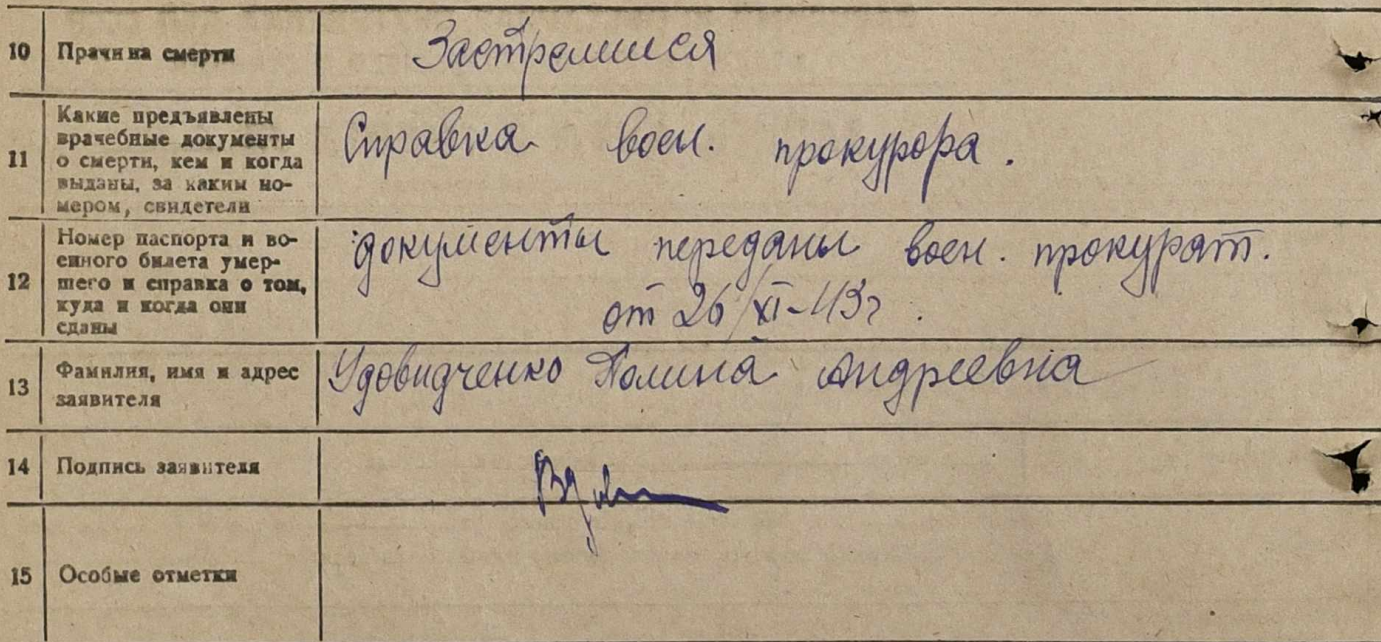 10 Причина смерти Застрелился
11 Какие предъявлены
врачебные документы
о смерти, кем и когда
выданы, за каким но-
мером, свидетели
Справка воен. прокурора.
12 Номер паспорта и во-
енного билета умер-
шего и справка о том,
куда и когда они
сданы
документы переданы воен. прокурат.
от 26/XI-43г.
13 Фамилия, имя и адрес
заявителя
Удовидченко Полина Андреевна
14 Подпись заявителя
15 Особые отметки